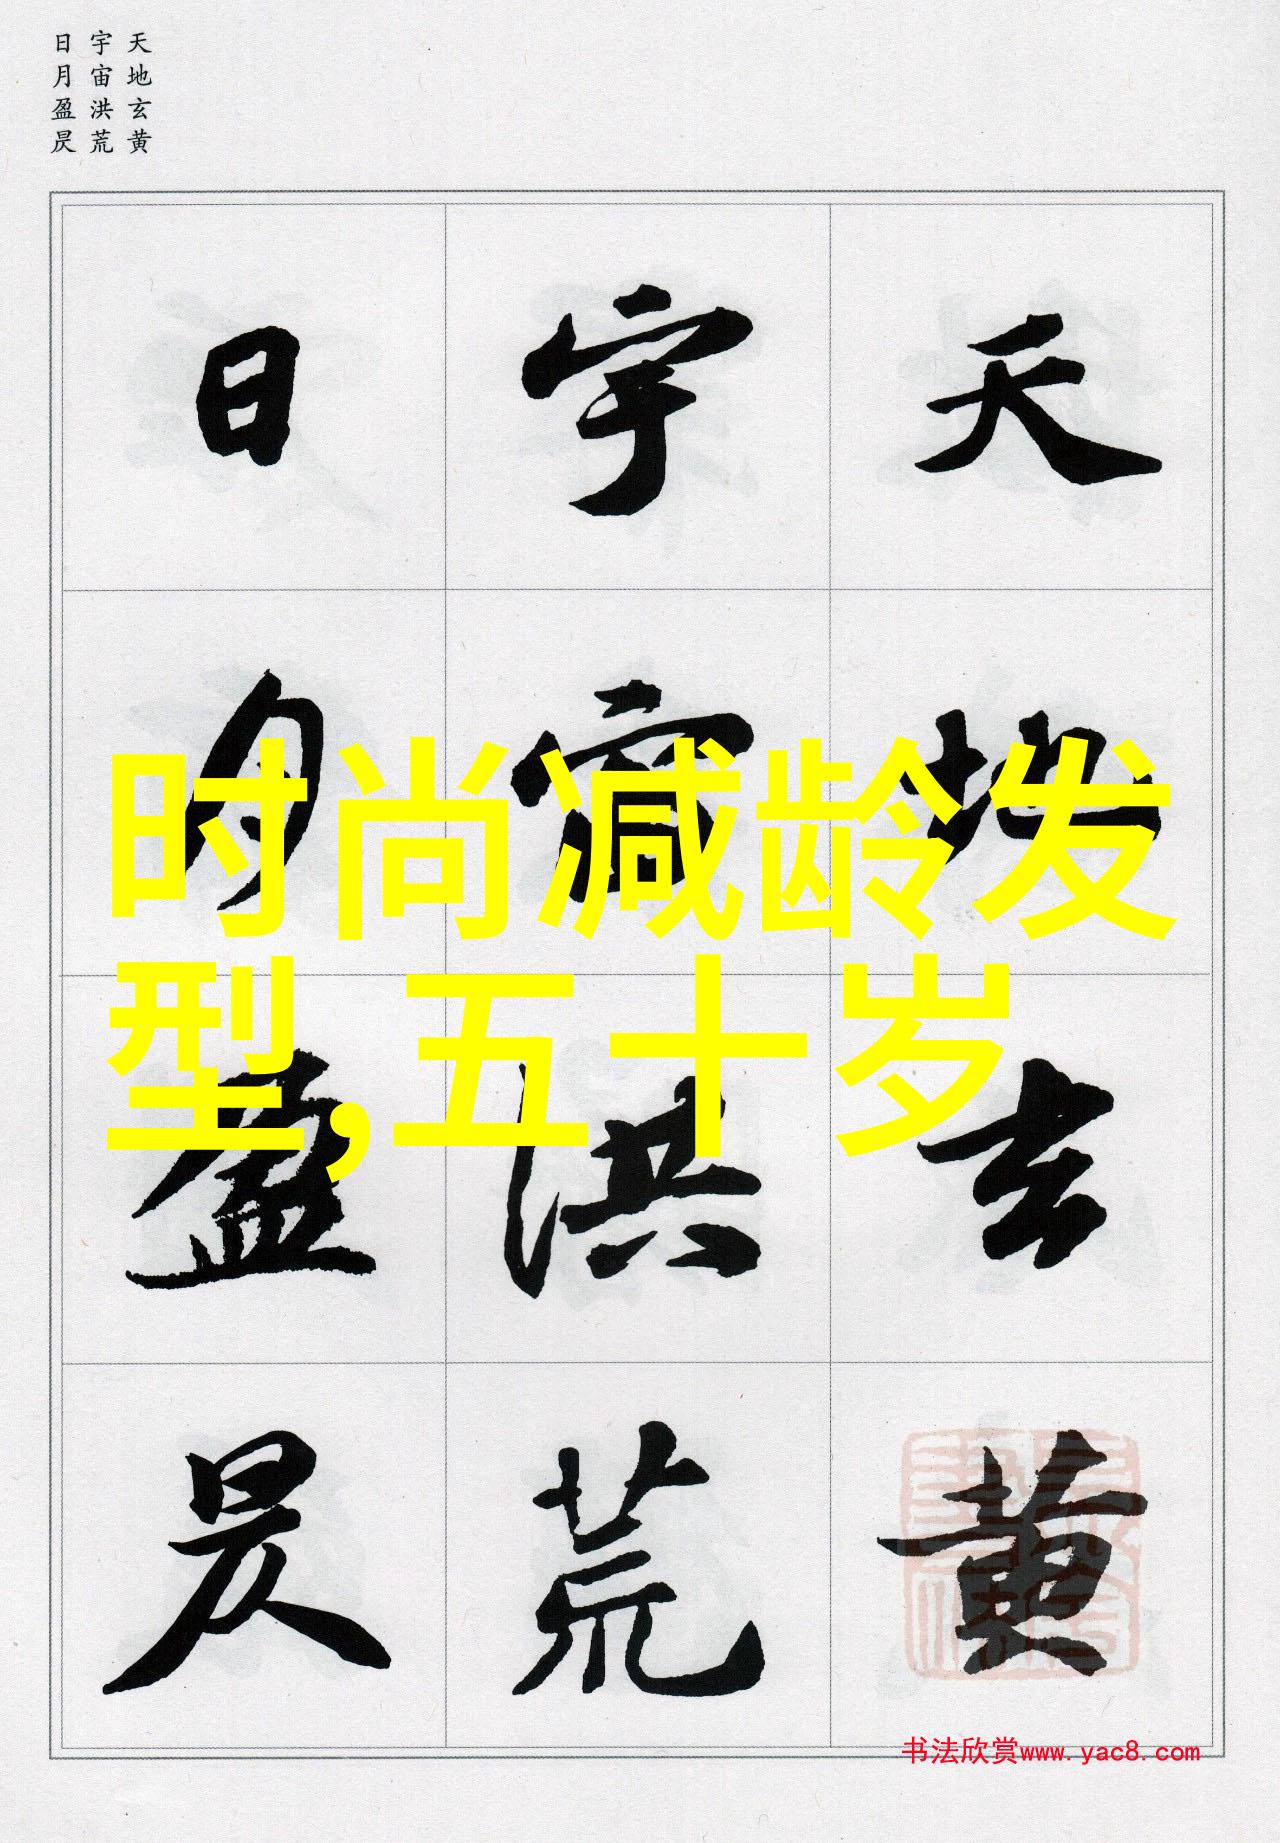 天地玄黄
宇宙洪荒
日月盈昃
天地玄黄
宇宙洪荒
日月盈昃
时尚减龄发
型,五十岁
书法欣赏www.yac8.com